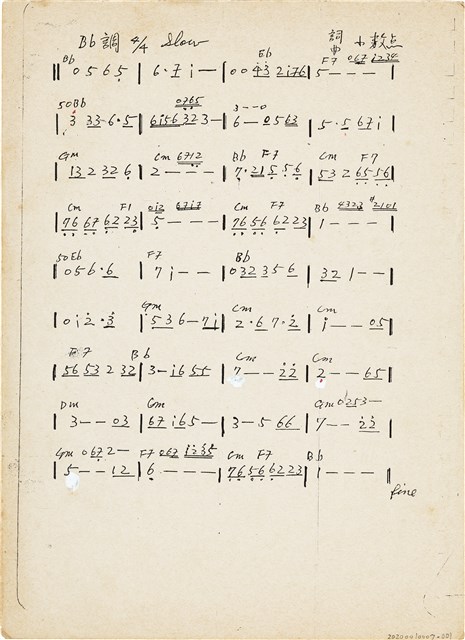 Bb調 4/4 Slow 詞曲 小數点
Bb Eb F7 0671 1234
‖ 0 5 6 5 | 6 · 7 i — | 0 0 4 3 2 i 7 6 | 5 — — — |
50 Bb 0765 3 — — 0
3 3 3 — 6 · 5 | 6 i 5 6 3 2 3 — | 6 — 0 5 6 3 | 5 · 5 6 7 i |
Gm Cm 6712 Bb F7 Cm F7
| 1 3 2 3 2 6 | 2 — — — | 7 · 2 1 5 · 5 6 | 5 3 2 6 5 5 6 |
Cm F1 012 6717 Cm F7 Bb 4323 #2101
| 7 6 6 7 6 2 2 3 | 5 — — — | 7 6 5 6 6 2 2 3 | 1 — — — |
50 Eb F7 Bb
| 0 5 6 · 6 | 7 i — — | 0 3 2 3 5 6 | 3 2 1 — — |
Gm Cm Cm
| 0 i 2 · 3 | 5 3 6 — 7 i | 2 · 6 7 · 2 | i — — 0 5 |
F7 Bb Cm Cm
| 5 6 5 3 2 3 2 | 3 — i 6 5 5 | 7 — — 2 2 | 2 — — 6 5 |
Dm Gm Gm 0253 —
| 3 — — 0 3 | 6 7 i 6 5 — | 3 — 5 6 6 | 7 — — 2 2 |
Gm 0672 — F7 067 1235 Cm F7 Bb
| 5 — — 1 2 | 6 — — — | 7 6 5 6 6 2 2 3 | 1 — — — ‖
fine